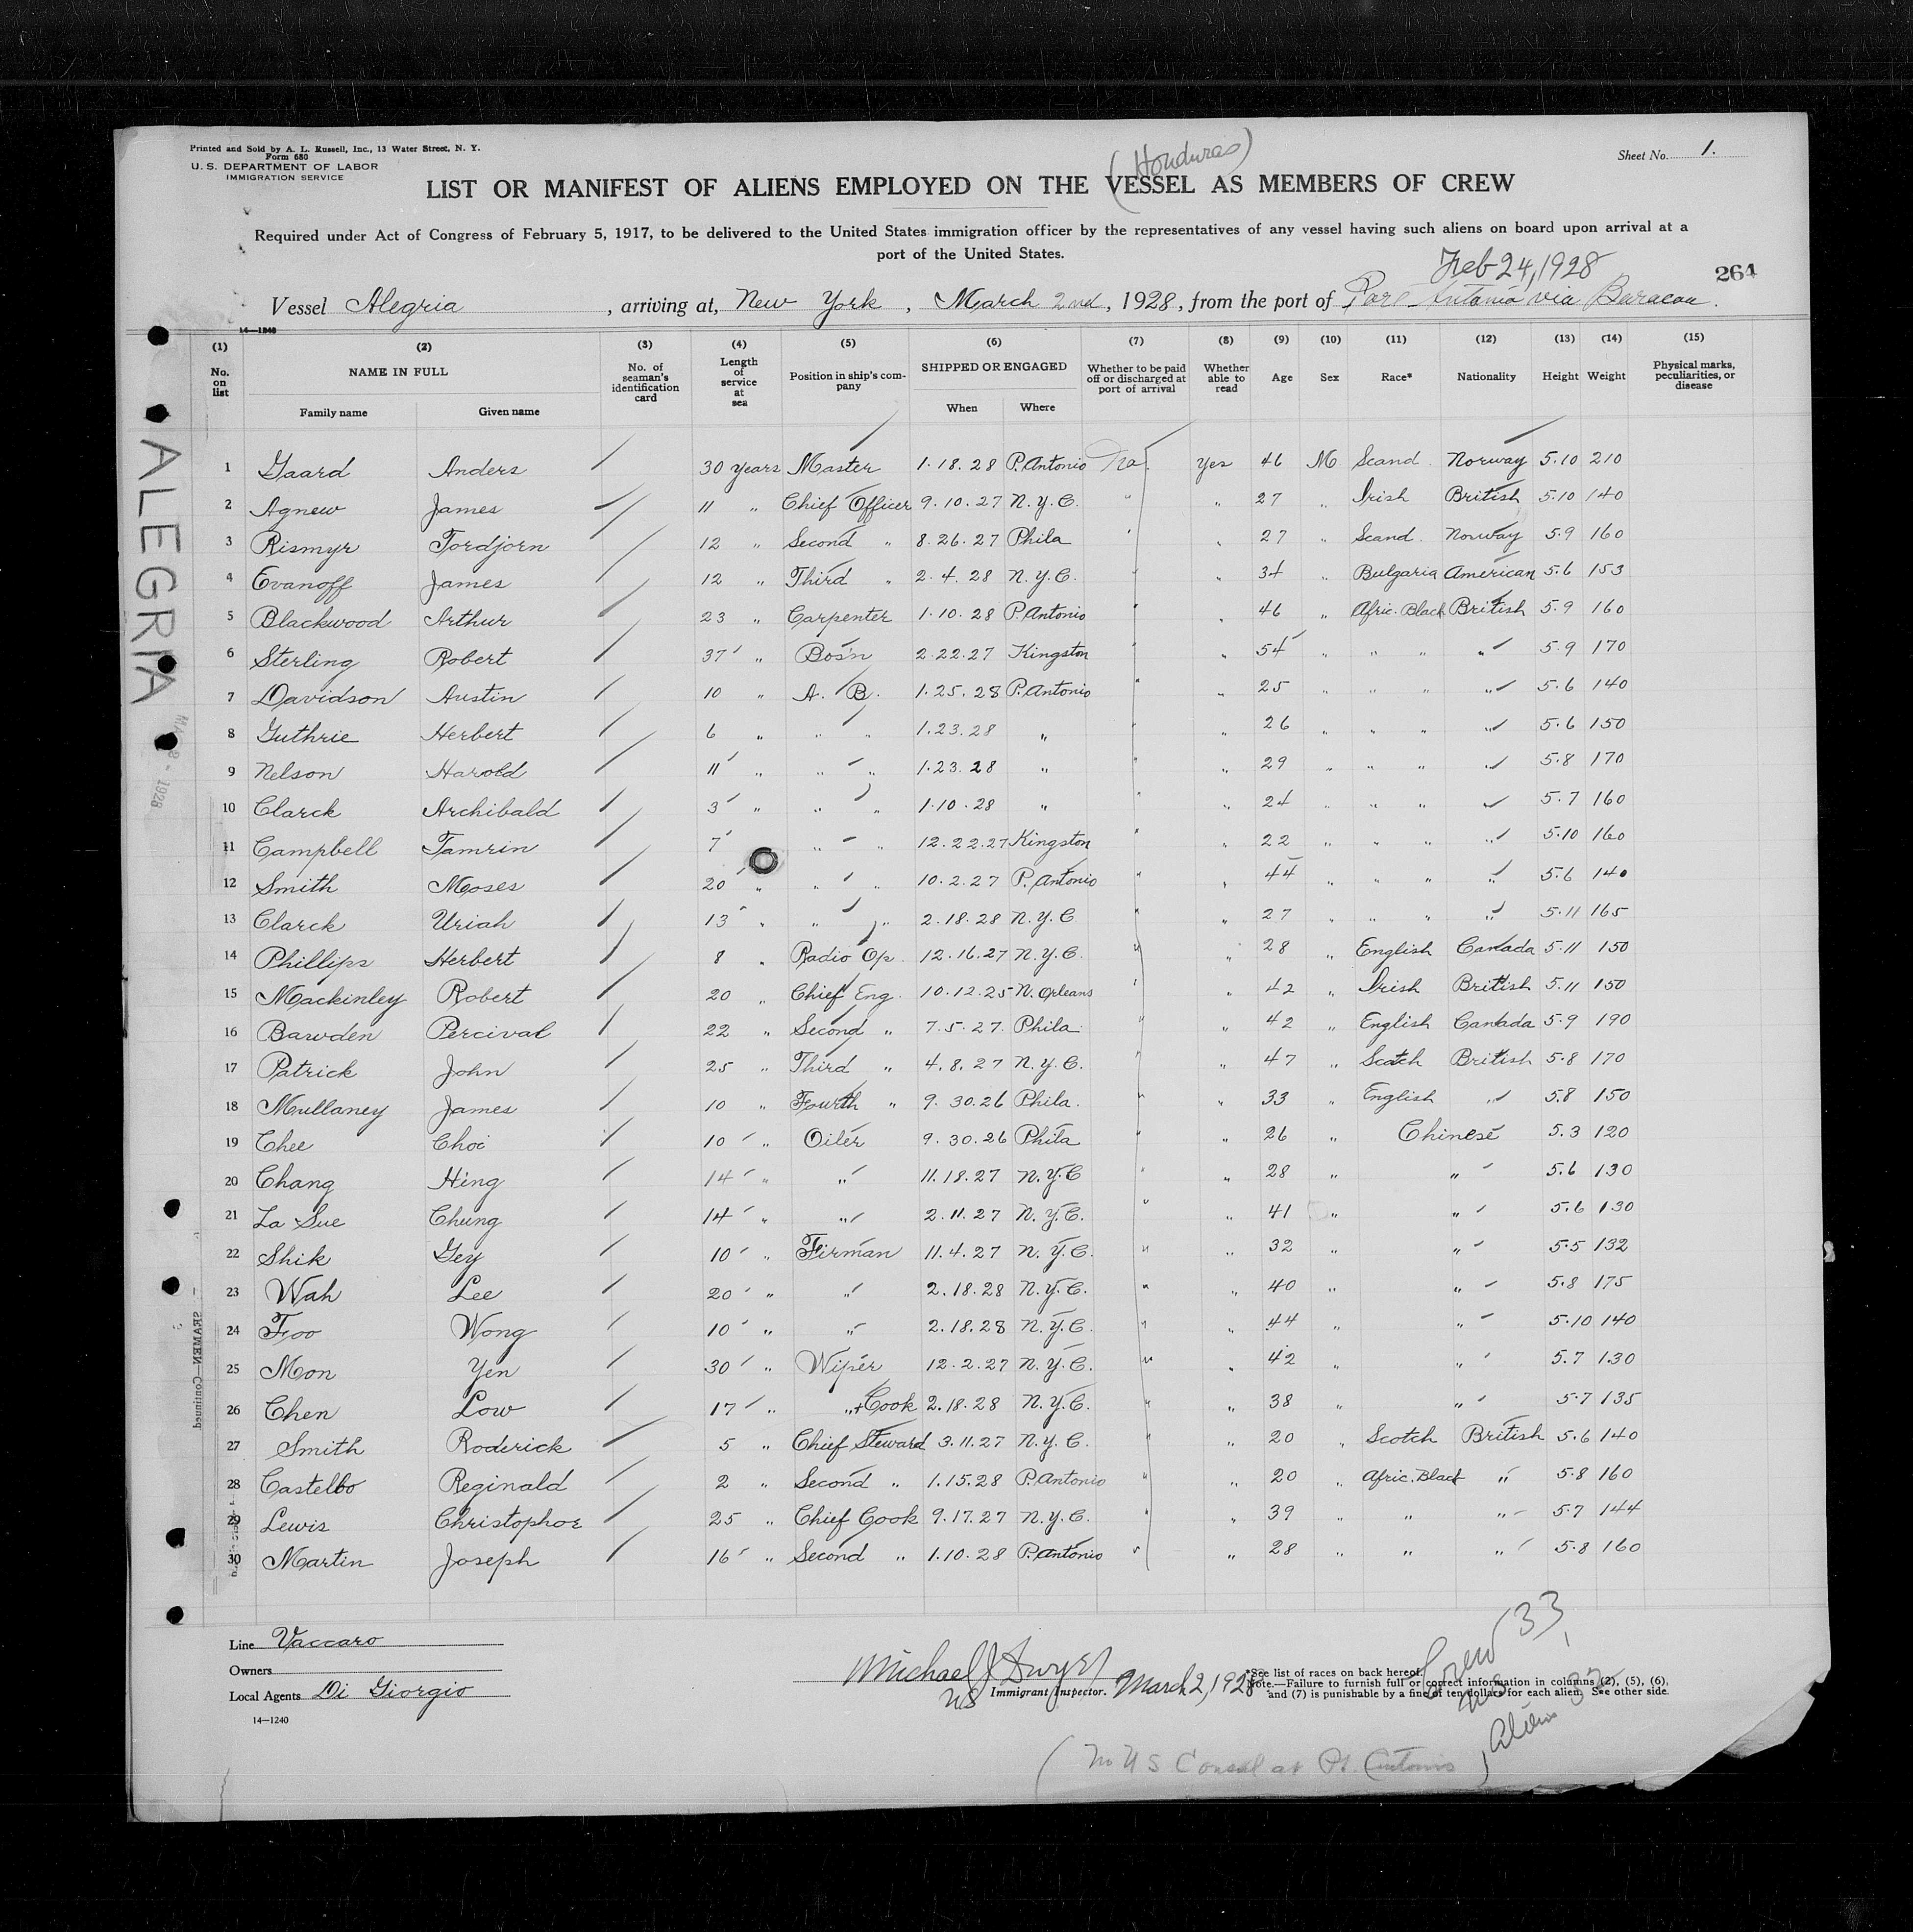 Printed and Sold by A. L. Russell, Inc., 13 Water Street, N. Y.
Form 680
U. S. DEPARTMENT OF LABOR
IMMIGRATION SERVICE
(Honduras)
Sheet No. 1.
LIST OR MANIFEST OF ALIENS EMPLOYED ON THE VESSEL AS MEMBERS OF CREW
Required under Act of Congress of February 5, 1917, to be delivered to the United States immigration officer by the representatives of any vessel having such aliens on board upon arrival at a
port of the United States.
Feb 24, 1928
264
Vessel Alegria, arriving at, New York, March 2nd, 1928, from the port of Port Antonio via Baracoa.
14—1240
(1) (2) (3) (4) (5) (6) (7) (8) (9) (10) (11) (12) (13) (14) (15)
No. on list NAME IN FULL Family name Given name No. of seaman's identification card Length of service at sea Position in ship's company SHIPPED OR ENGAGED When Where Whether to be paid off or discharged at port of arrival Whether able to read Age Sex Race* Nationality Height Weight Physical marks, peculiarities, or disease
1 Gaard Anders 30 years Master 1.18.28 P. Antonio No. Yes 46 M Scand. Norway 5.10 210
2 Agnew James 11 " Chief Officer 9.10.27 N.Y.C. " " 27 " Irish British 5.10 140
3 Rismyr Tordjorn 12 " Second " 8.26.27 Phila " " 27 " Scand. Norway 5.9 160
4 Evanoff James 12 " Third " 2.4.28 N.Y.C. " " 34 " Bulgaria American 5.6 153
5 Blackwood Arthur 23 " Carpenter 1.10.28 P. Antonio " " 46 " Afric. Black British 5.9 160
6 Sterling Robert 37 " Bos'n 2.22.27 Kingston " " 54 " " " " 5.9 170
7 Davidson Austin 10 " A. B. 1.25.28 P. Antonio " " 25 " " " " 5.6 140
8 Guthrie Herbert 6 " " " 1.23.28 " " " 26 " " " " 5.6 150
9 Nelson Harold 11 " " " 1.23.28 " " " 29 " " " " 5.8 170
10 Clarck Archibald 3 " " " 1.10.28 " " " 24 " " " " 5.7 160
11 Campbell Tamrin 7 " " 12.22.27 Kingston " " 22 " " " " 5.10 160
12 Smith Moses 20 " " " 10.2.27 P. Antonio " " 44 " " " " 5.6 140
13 Clarck Uriah 13 " " " 2.18.28 N.Y.C " " 27 " " " " 5.11 165
14 Phillips Herbert 8 " Radio Op. 12.16.27 N.Y.C. " " 28 " English Canada 5.11 150
15 Mackinley Robert 20 " Chief Eng. 10.12.25 N. Orleans " " 42 " Irish British 5.11 150
16 Bawden Percival 22 " Second " 7.5.27. Phila " " 42 " English Canada 5.9 190
17 Patrick John 25 " Third " 4.8.27 N.Y.C. " " 47 " Scotch British 5.8 170
18 Mullaney James 10 " Fourth " 9.30.26 Phila. " " 33 " English " 5.8 150
19 Chee Choi 10 " Oiler 9.30.26 Phila " " 26 " Chinese 5.3 120
20 Chang Hing 14 " " 11.18.27 N.Y.C " " 28 " " 5.6 130
21 La Sue Chung 14 " " 2.11.27 N.Y.C. " " 41 " " 5.6 130
22 Shik Gey 10 " Firman 11.4.27 N.Y.C. " " 32 " " 5.5 132
23 Wah Lee 20 " " 2.18.28 N.Y.C. " " 40 " " 5.8 175
24 Foo Wong 10 " " 2.18.28 N.Y.C. " " 44 " " 5.10 140
25 Mon Yen 30 " Wiper 12.2.27 N.Y.C. " " 42 " " 5.7 130
26 Chen Low 17 " "+Cook 2.18.28 N.Y.C. " " 38 " " 5.7 135
27 Smith Roderick 5 " Chief Steward 3.11.27 N.Y.C. " " 20 " Scotch British 5.6 140
28 Castelbo Reginald 2 " Second " 1.15.28 P. Antonio " " 20 " Afric. Black " 5.8 160
29 Lewis Christophor 25 " Chief Cook 9.17.27 N.Y.C. " " 39 " " " 5.7 144
30 Martin Joseph 16 " Second " 1.10.28 P. Antonio " " 28 " " " 5.8 160
ALEGRIA
MAR 2 - 1928
SEAMEN—Continued
Line Vaccaro
Owners
Local Agents Di Giorgio
14—1240
Michael J Dwyer
US Immigrant Inspector. March 2, 1928
*See list of races on back hereof.
Note.—Failure to furnish full or correct information in columns (2), (5), (6),
and (7) is punishable by a fine of ten dollars for each alien. See other side.
Crew 33
Aliens 32
(No US Consul at Pt. Antonio)